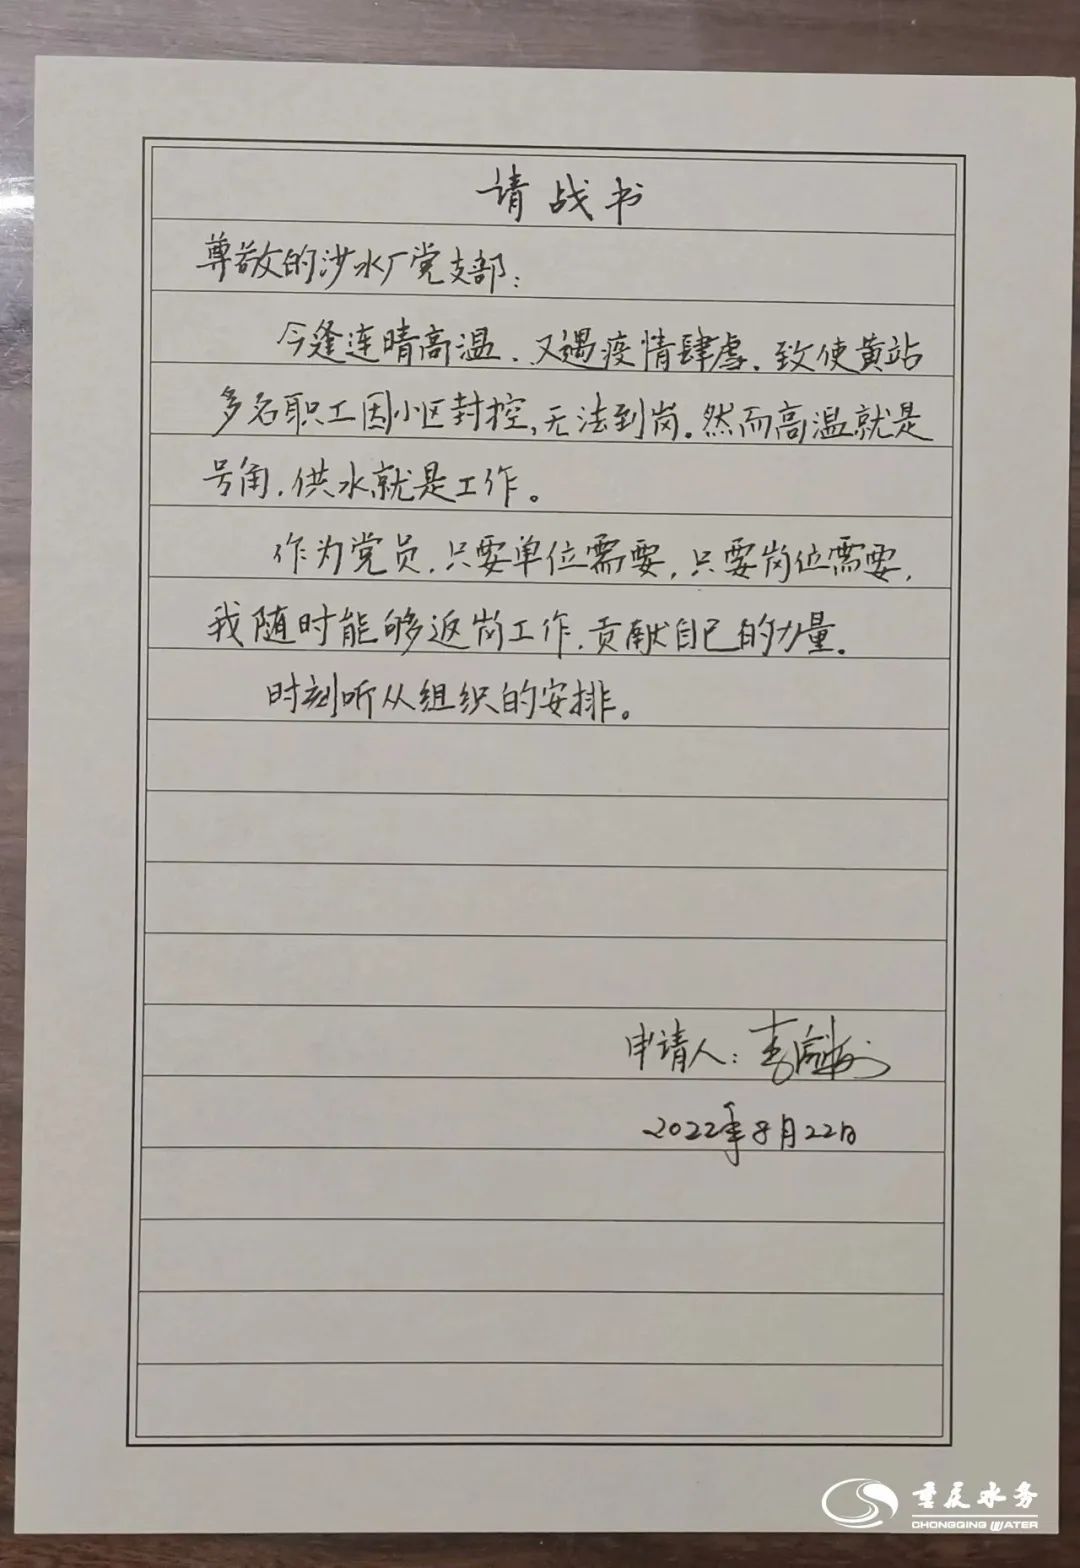 请战书
尊敬的沙水厂党支部：
今逢连晴高温，又遇疫情肆虐，致使黄站
多名职工因小区封控，无法到岗。然而高温就是
号角，供水就是工作。
作为党员，只要单位需要，只要岗位需要，
我随时能够返岗工作，贡献自己的力量。
时刻听从组织的安排。
申请人：李
2022年8月22日
重庆水务
CHONGQING WATER